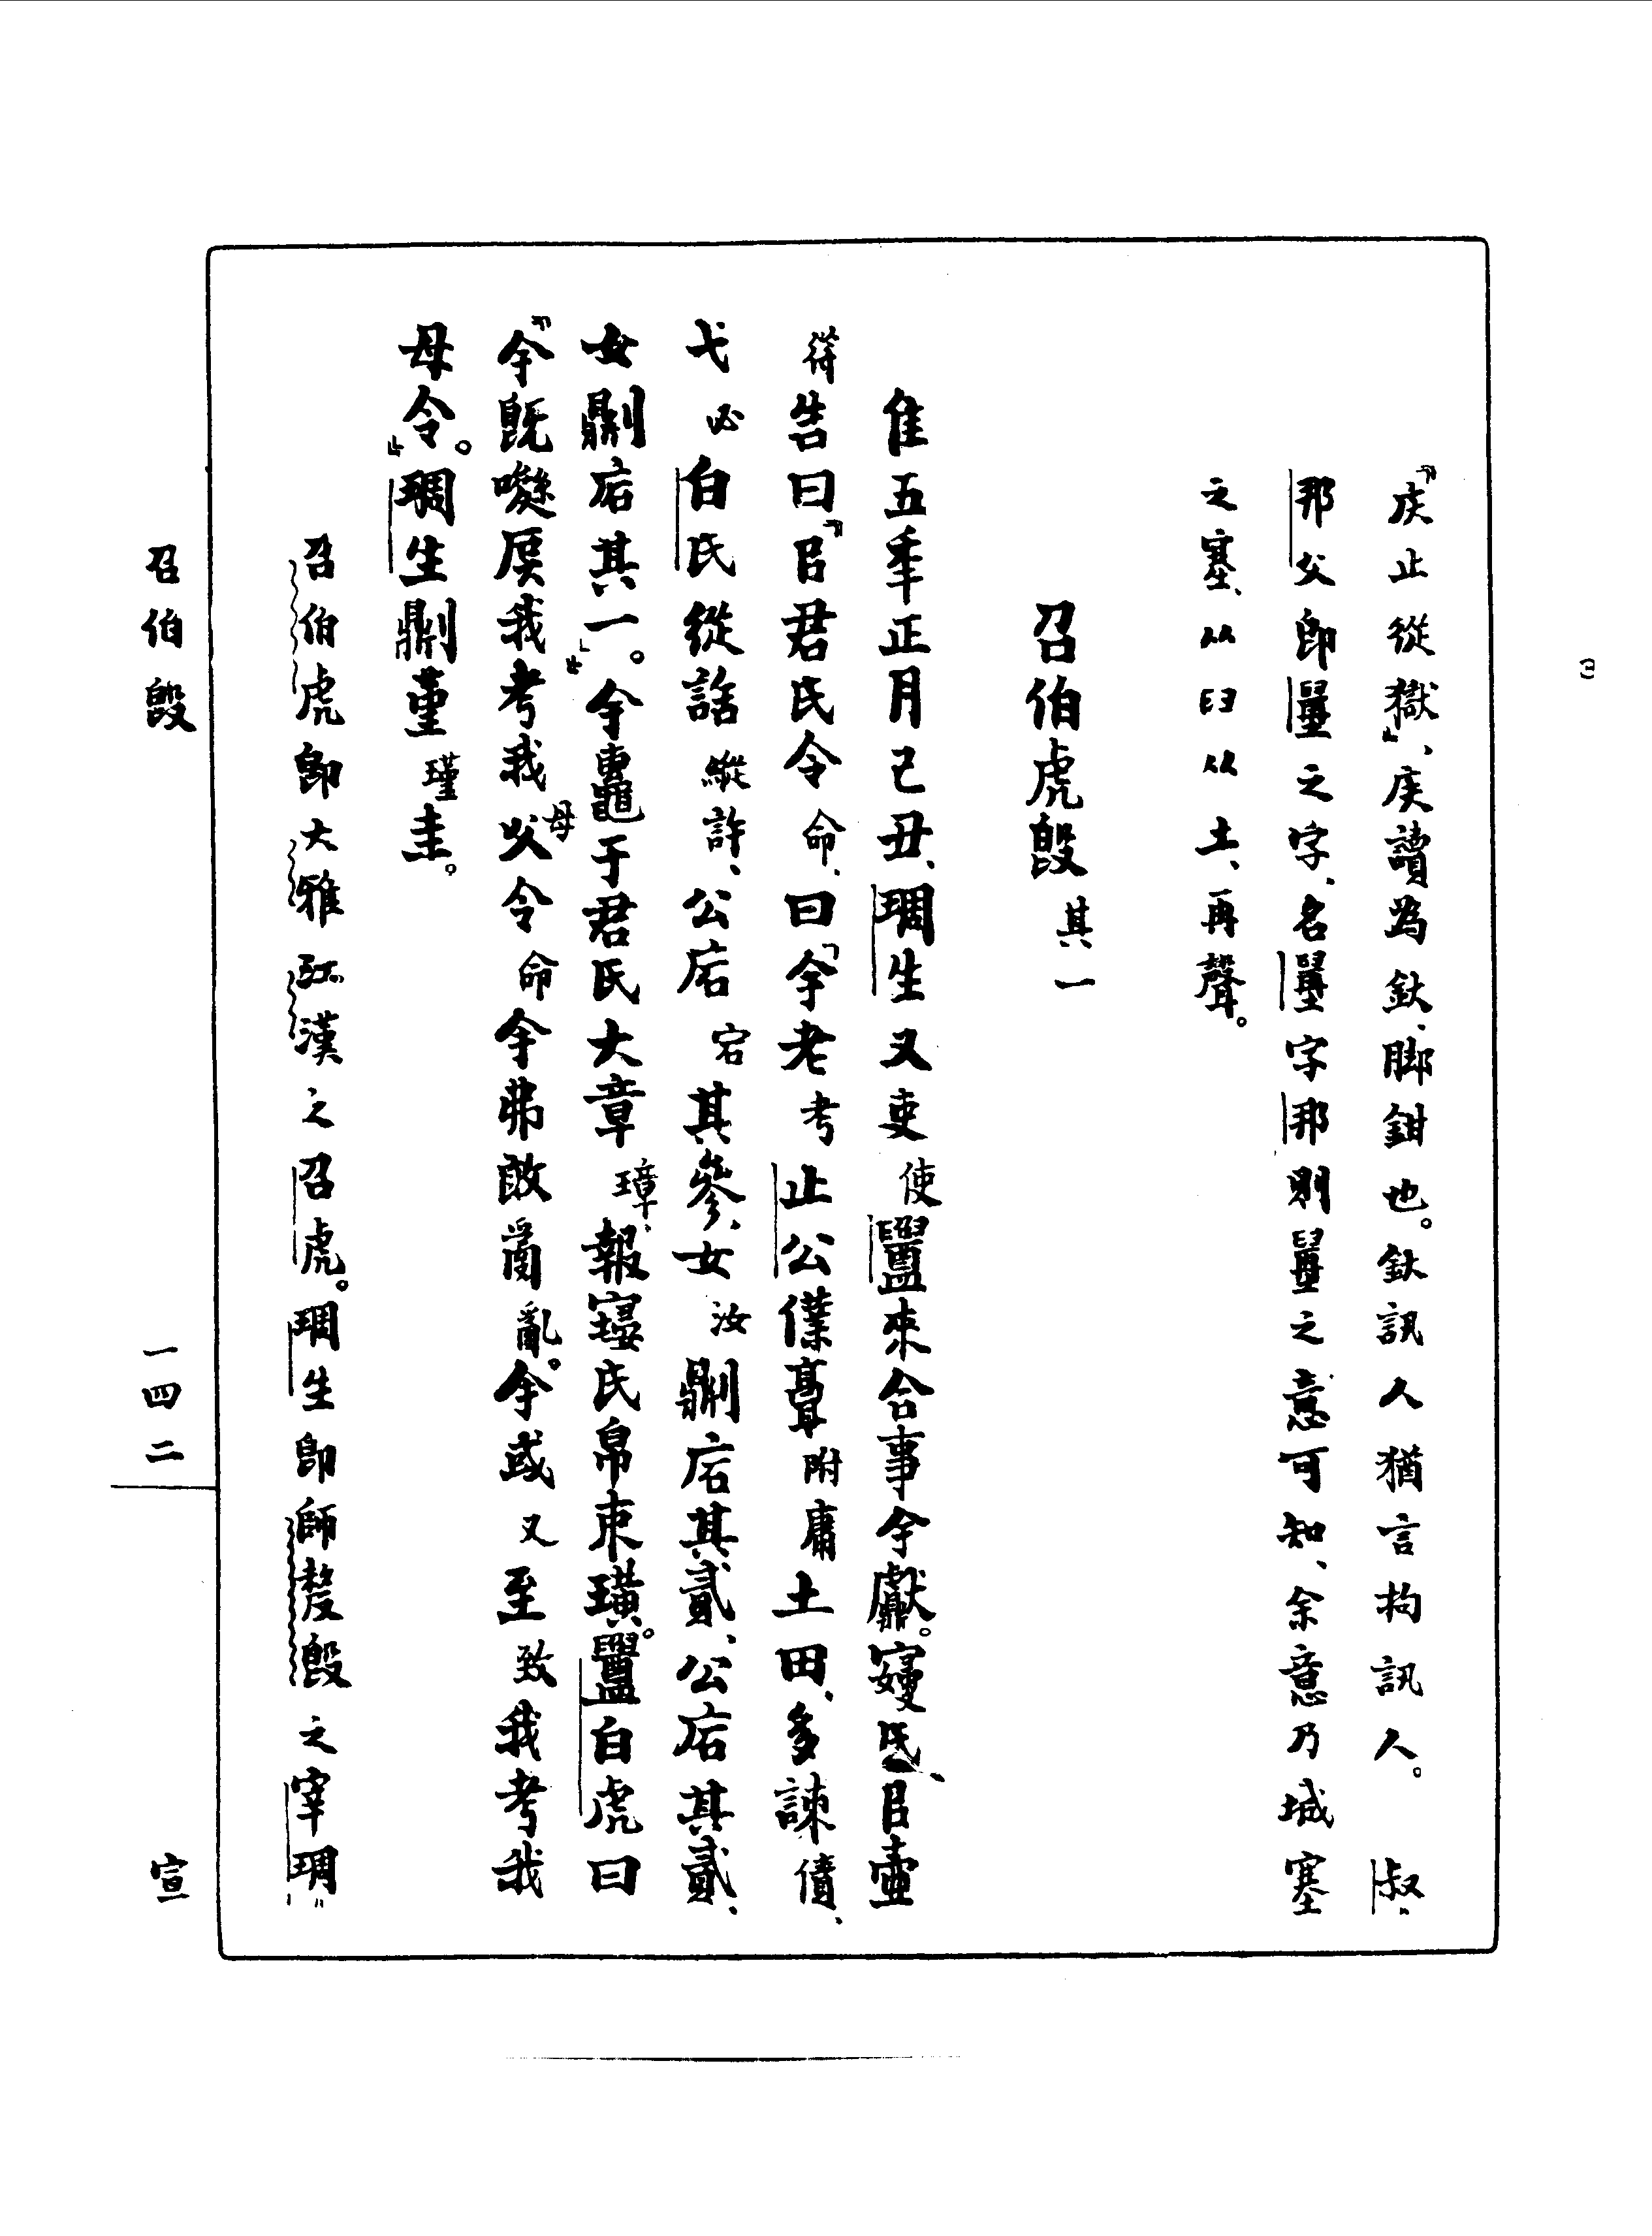 『庆止從獄』、庆讀為釱、脚鉗也。釱訊人猶言拘訊人。　叔
邦父卽之字、名字邦則之意可知、余意乃城塞
之塞、从𦥑从土、再聲。
召伯虎𣪘 其一
隹五年正月己丑、琱生又吏使來合事余獻。氏、㠯壺
告曰『㠯君氏令命、曰「余老考止公僕附庸土田、多諫債、
弋必白氏從𧧻縱許、公𠩵宕其參、女汝𠟭𠩵其貳、公𠩵其貳、
女𠟭𠩵其一。」』余于君氏大章璋、報氏帛束璜。白虎曰
『余既我考我母令命余弗敢𤔔亂。余或又至致我考我
母令。』琱生𠟭堇瑾圭。
召伯虎卽大雅江漢之召虎。琱生卽師𠩺𣪘之宰琱
召伯𣪘
一四二
宣